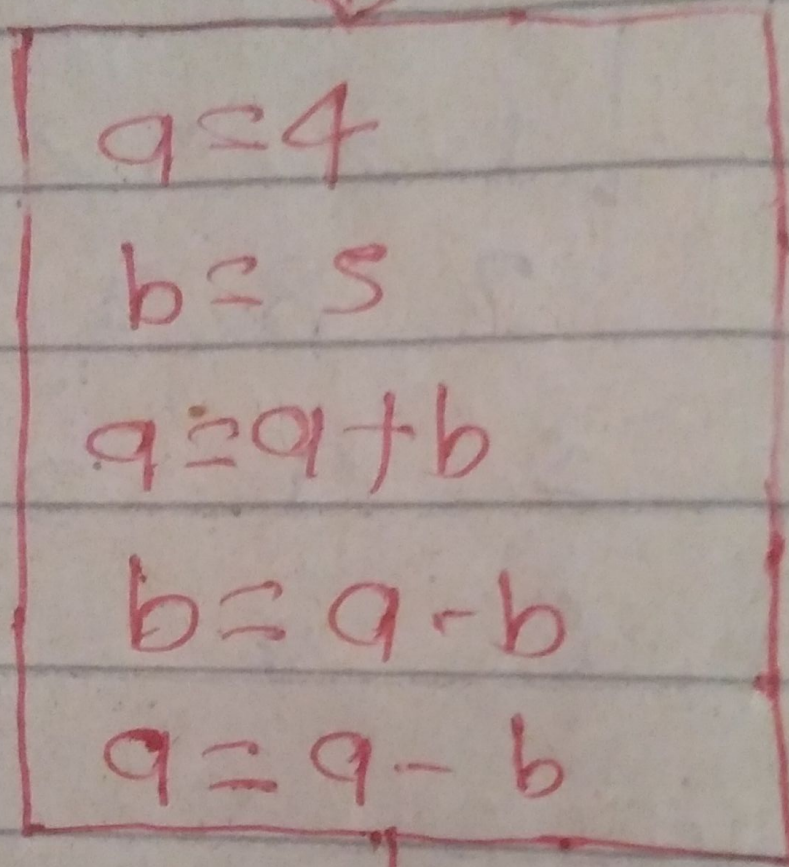 a=4
b= 5
a=a+b
b= a-b
a= a- b